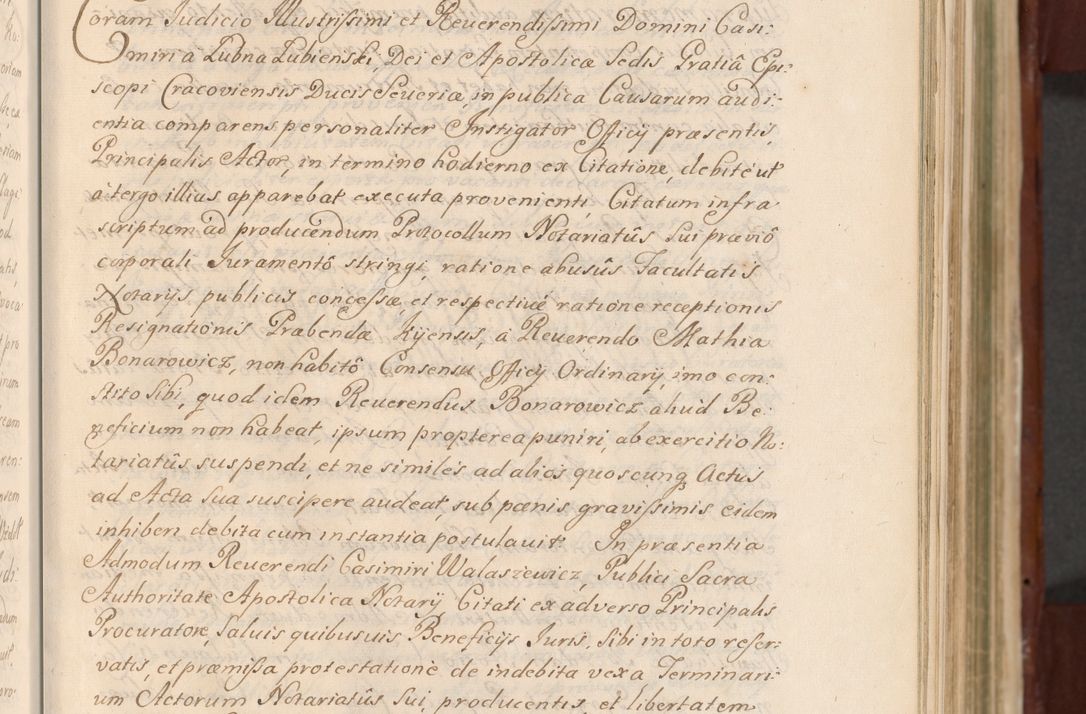 Coram Judicio Illustrissimi et Reuerendissimi Domini Casi:
miri a Łubna Łubienski, Dei et Apostolicæ Sedis Gratiâ Epi:
scopi Cracoviensis Ducis Seueriæ, in publica Causarum audi:
entia comparens personaliter Instigator Officij præsentis,
Principalis Actor, in termino hodierno ex Citatione, debitè ut
à tergo illius apparebat executa provenienti, Citatum infra
scriptum ad producendum Protocollum Notariatûs sui præviô
corporali Juramentô stringi, ratione abusûs Facultatis
Notarijs publicis concessæ, et respectivè ratione receptionis
Resignationis Præbendæ Kijensis, à Reuerendo Mathia
Bonarowicz, non habitô Consensu Officij Ordinarij, imo con:
stito sibi, quod idem Reuerendus Bonarowicz aliud Be:
neficium non habeat, ipsum propterea puniri, ab exercitio No:
tariatûs suspendi, et ne similes ad alios quoscunq Actus
ad Acta sua suscipere audeat, sub pænis gravissimis eidem
inhiberi debita cum instantia postulauit. In præsentia
Admodum Reuerendi Casimiri Walaszewicz, Publici Sacra
Authoritate Apostolica Notarij Citati ex adverso Principalis
Procuratore, Saluis quibusuis Beneficijs Juris, sibi in toto reser:
vatis, et præmissa protestatione de indebita vexa Terminari:
um Actorum Notariatûs sui, producentis, et libertatem